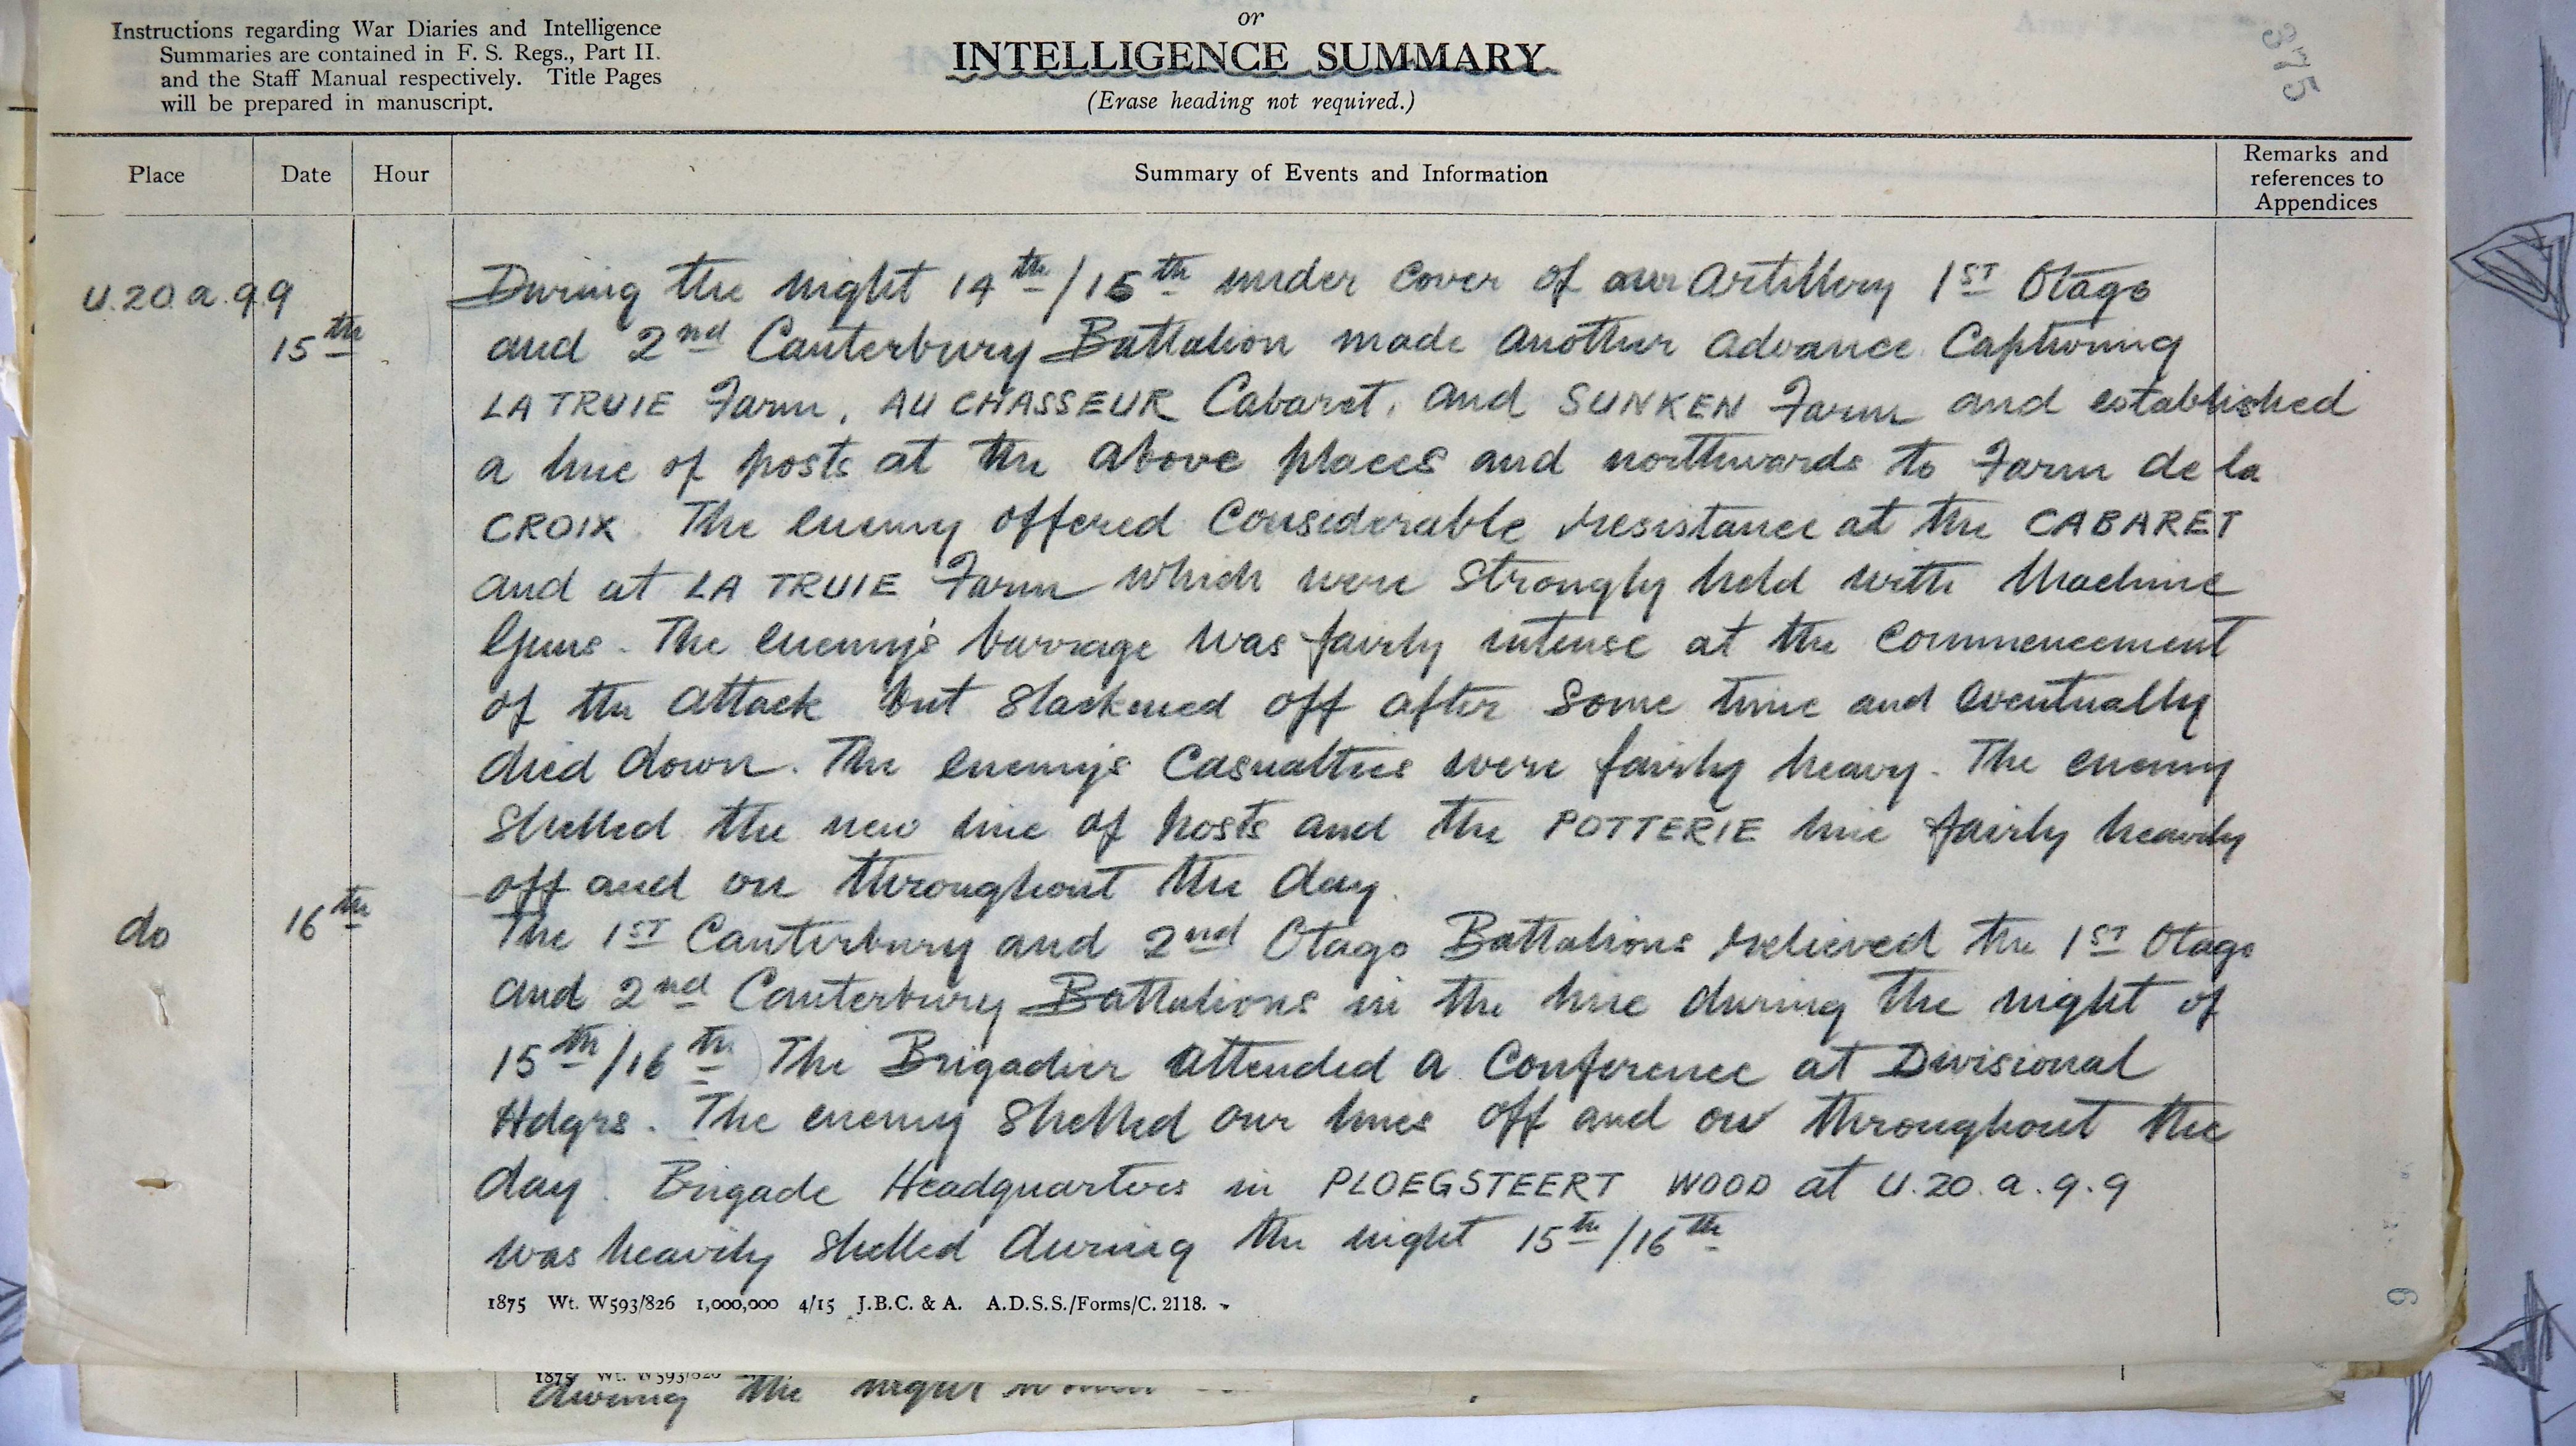 or
Instructions regarding War Diaries and Intelligence
Summaries are contained in F. S. Regs., Part II.
and the Staff Manual respectively. Title Pages
will be prepared in manuscript.
INTELLIGENCE SUMMARY.
(Erase heading not required.)
375
Place
Date
Hour
Summary of Events and Information
Remarks and
references to
Appendices
U.20.a.9.9
15th
During the night 14th/15th under cover of our Artillery 1ST Otago
and 2nd Canterbury Battalion made another advance Capturing
LA TRUIE Farm, AU CHASSEUR Cabaret, and SUNKEN Farm and established
a line of posts at the above places and northwards to Farm de la
CROIX. The enemy offered considerable resistance at the CABARET
and at LA TRUIE Farm which were strongly held with Machine
Guns. The enemy's barrage was fairly intense at the commencement
of the attack but slackened off after some time and eventually
died down. The enemy's casualties were fairly heavy. The enemy
shelled the new line of posts and the POTTERIE line fairly heavily
off and on throughout the day.
do
16th
The 1ST Canterbury and 2nd Otago Battalions relieved the 1ST Otago
and 2nd Canterbury Battalions in the line during the night of
15th/16th The Brigadier attended a Conference at Divisional
Hdqrs. The enemy shelled our lines off and on throughout the
day. Brigade Headquarters in PLOEGSTEERT WOOD at U.20.a.9.9
was heavily shelled during the night 15th/16th
1875 Wt. W593/826 1,000,000 4/15 J.B.C. & A. A.D.S.S./Forms/C. 2118.
1875 Wt. W593/826
during the night